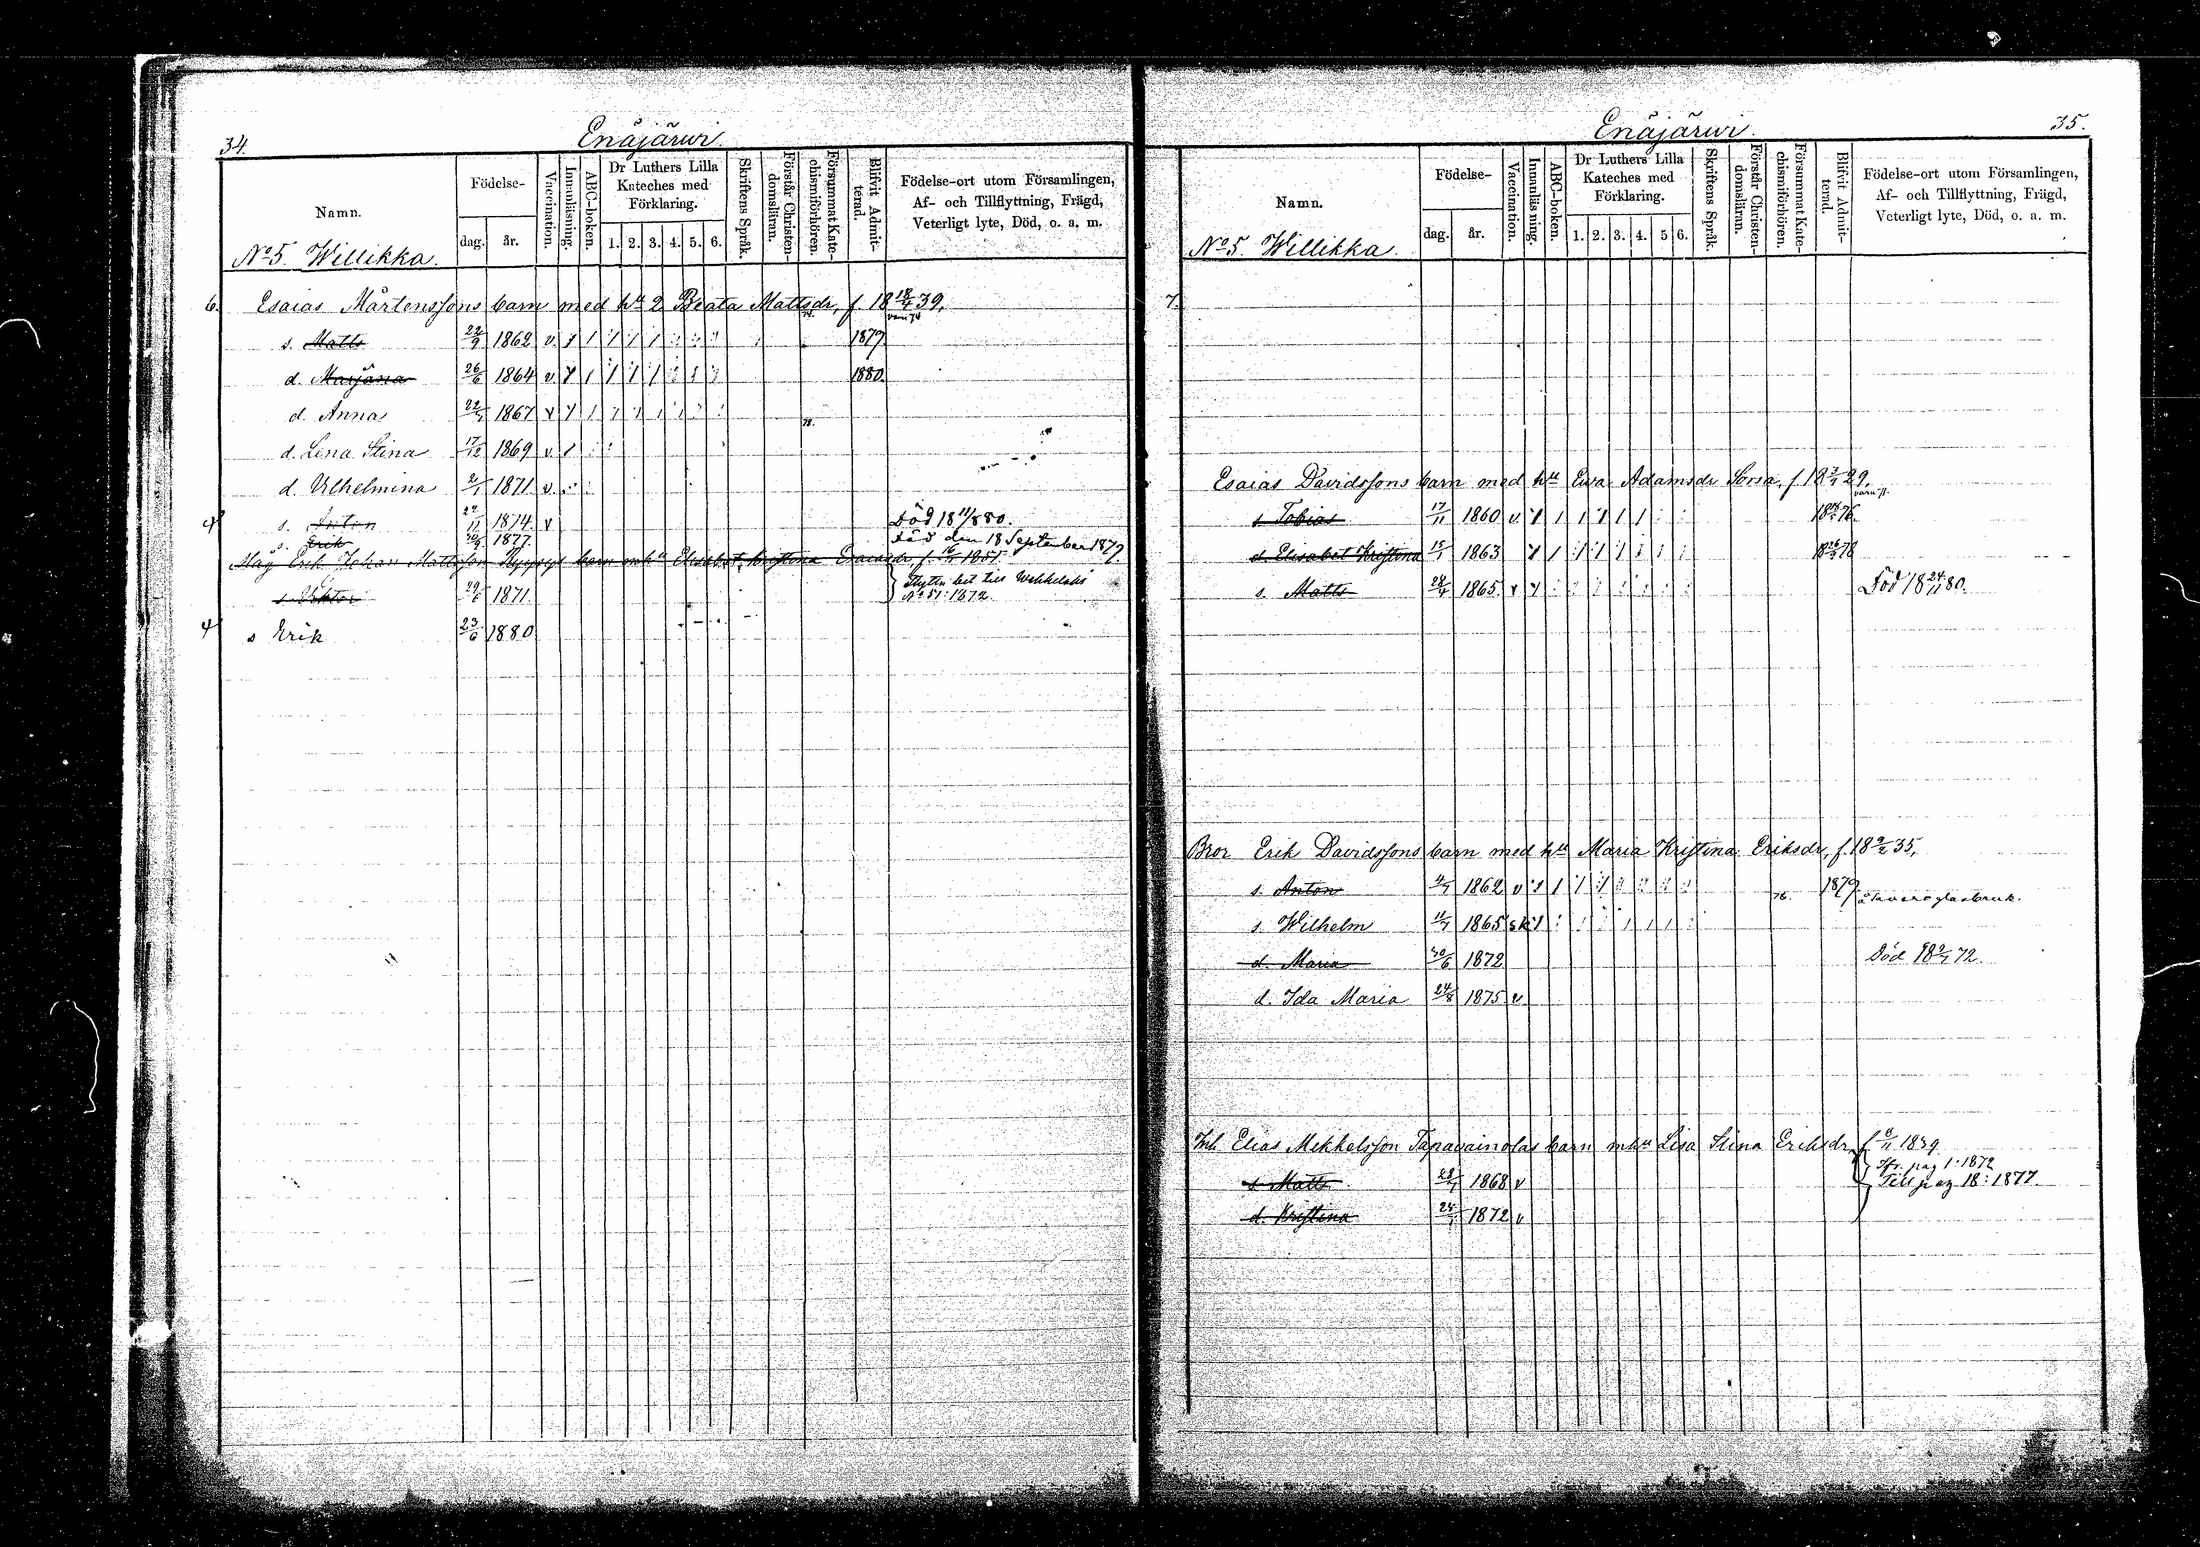 34.
Enäjärwi.
Namn.
Födelse-
dag.
år.
Vaccination.
Innanläsning.
ABC-boken.
Dr Luthers Lilla
Kateches med
Förklaring.
1. 2. 3. 4. 5. 6.
Skriftens Språk.
Förstår Christen-
domsläran.
Försummat Kate-
chismiförhören.
Blifvit Admit-
terad.
Födelse-ort utom Församlingen,
Af- och Tillflyttning, Frägd,
Veterligt lyte, Död, o. a. m.
No 5. Willikka.
6. Esaias Mårtenssons barn med hu 2 Beata Mattsdr, f. 18 18/4 39,
s. Matts 22/9 1862 v. 1879
d. Marjana 26/6 1864 v 1880.
d. Anna 1867 v 78.
d. Lena Stina 17/12 1869 v.
d. Vilhelmina 2/1 1871 v.
s. Anton 1874 v Död 18 11/8 80.
s. Erik 1877. Död den 18 September 1879.
Måg Erik Johan Mattsson barn m hu Elisabet Kristina Esaiasdr, f. 16/11 1851.
s. Viktor 29/6 1871 No 51: 1872.
s Erik 23/6 1880
35.
Enäjärwi.
Namn.
Födelse-
dag.
år.
Vaccination.
Innanläsning.
ABC-boken.
Dr Luthers Lilla
Kateches med
Förklaring.
1. 2. 3. 4. 5 6.
Skriftens Språk.
Förstår Christen-
domsläran.
Försummat Kate-
chismiförhören.
Blifvit Admit-
terad.
Födelse-ort utom Församlingen,
Af- och Tillflyttning, Frägd,
Veterligt lyte, Död, o. a. m.
No 5. Willikka.
7.
Esaias Davidssons barn med hu Ewa Adamsdr Sorsa, f. 18 29,
s Tobias 17/11 1860 v. 76.
d. Elisabet Kristina 15/1 1863 78
s. Matts 28/4 1865 v Död 18 24/11 80.
Bror Erik Davidssons barn med hu Maria Kristina Eriksdr, f. 18 9/2 35,
s. Anton 4/7 1862 v 76. 1879
s. Wilhelm 1865 sk
d. Maria 30/6 1872 Död 18 72.
d. Ida Maria 24/8 1875 v
Inh. Elias Mekkelsson Tapavainolas barn m hu Lisa Stina Eriksdr, f 8/11 1839.
Ifr. pag 1: 1872
s Matts 1868 v Till pag 18: 1877.
d. Kristina 1872 v